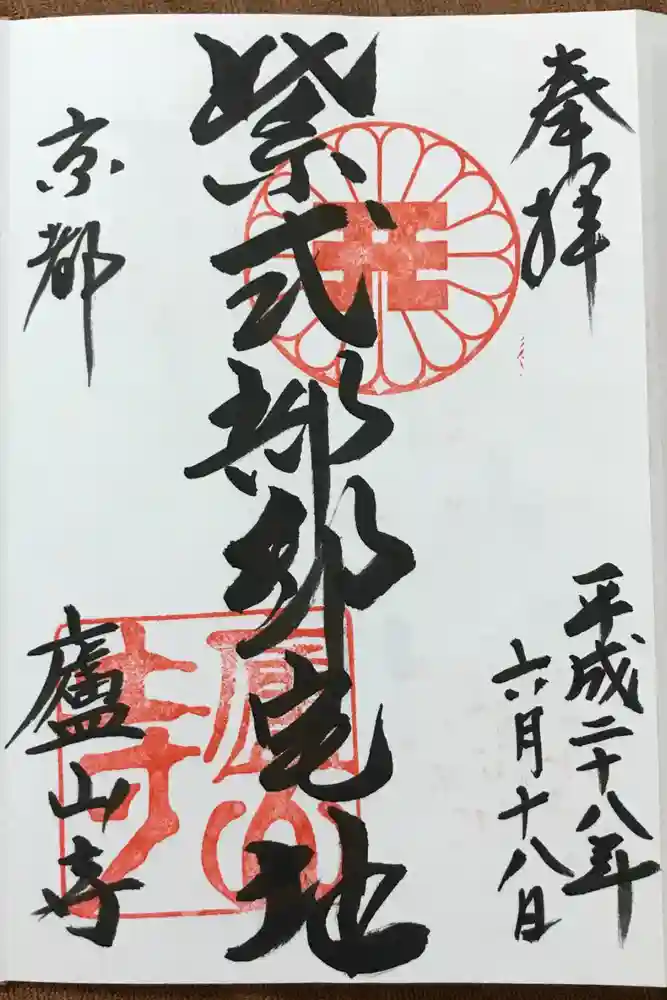 奉拝
平成二十八年
六月十八日
紫式部邸宅地
京都
廬山寺
廬山寺